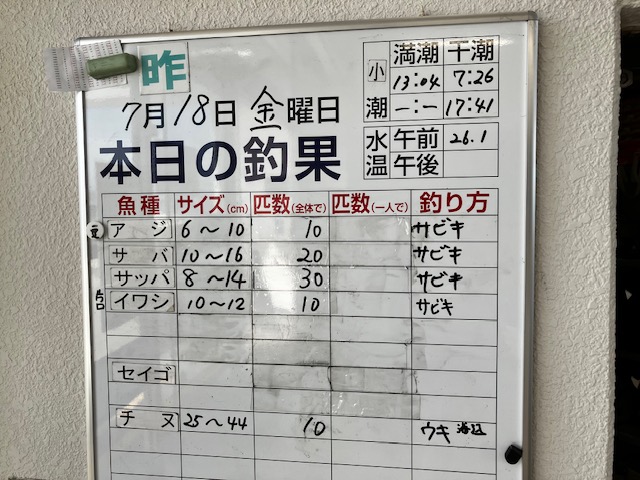 昨
7月18日 金曜日
本日の釣果
小潮 満潮 干潮
13:04 7:26
—:— 17:41
水温 午前 26.1
午後
魚種 サイズ(cm) 匹数(全体で) 匹数(一人で) 釣り方
豆 アジ 6〜10 10 サビキ
サバ 10〜16 20 サビキ
サッパ 8〜14 30 サビキ
片口 イワシ 10〜12 10 サビキ
セイゴ
チヌ 25〜44 10 ウキ